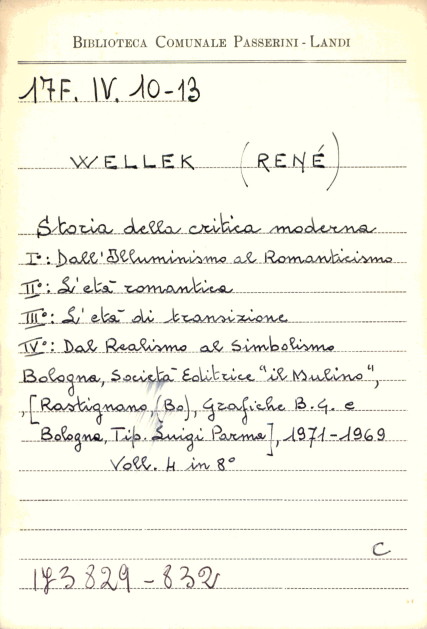 BIBLIOTECA COMUNALE PASSERINI - LANDI
17F. IV. 10-13
WELLEK (RENÉ)
Storia della critica moderna
I°: Dall'Illuminismo al Romanticismo
II°: L'età romantica
III°: L'età di transizione
IV°: Dal Realismo al Simbolismo
Bologna, Società Editrice "il Mulino",
,[Rastignano, (Bo), Grafiche B.G. e
Bologna, Tip. Luigi Parma], 1971-1969
Voll. 4 in 8°
C
173829-832